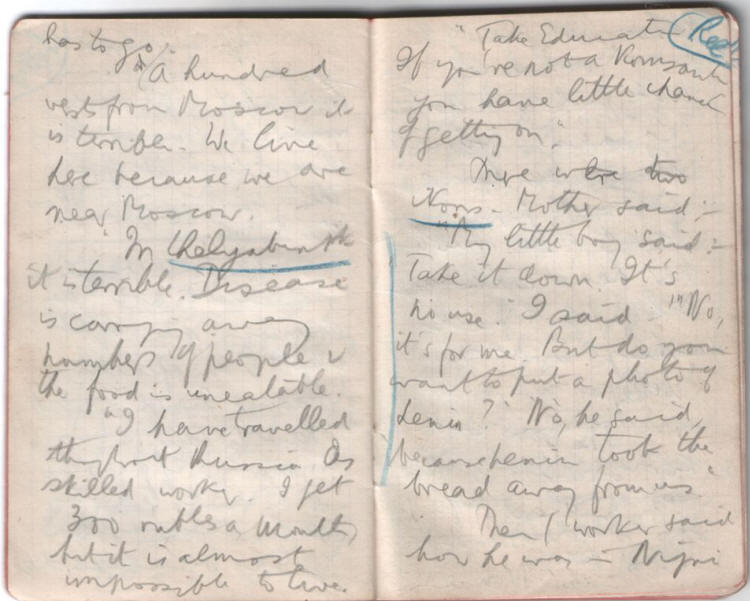 has to go."
"A hundred
versts from Moscow it
is terrible. We live
here because we are
near Moscow.
"In Chelyabinsk
it is terrible. Disease
is carrying away
numbers of people &
the food is uneatable.
"I have travelled
throughout Russia as
skilled worker. I get
300 roubles a month,
but it is almost
impossible to live.
"Take Education
If you're not a Komsomol
you have little chance
of getting on."
There were two
Icons. Mother said:-
"My little boy said:-
Take it down. It's
no use." I said "No,
it's for me. But do you
want to put a photo of
Lenin?" No, he said,
because Lenin took the
bread away from us."
Then 1 worker said
how he was in Nijni